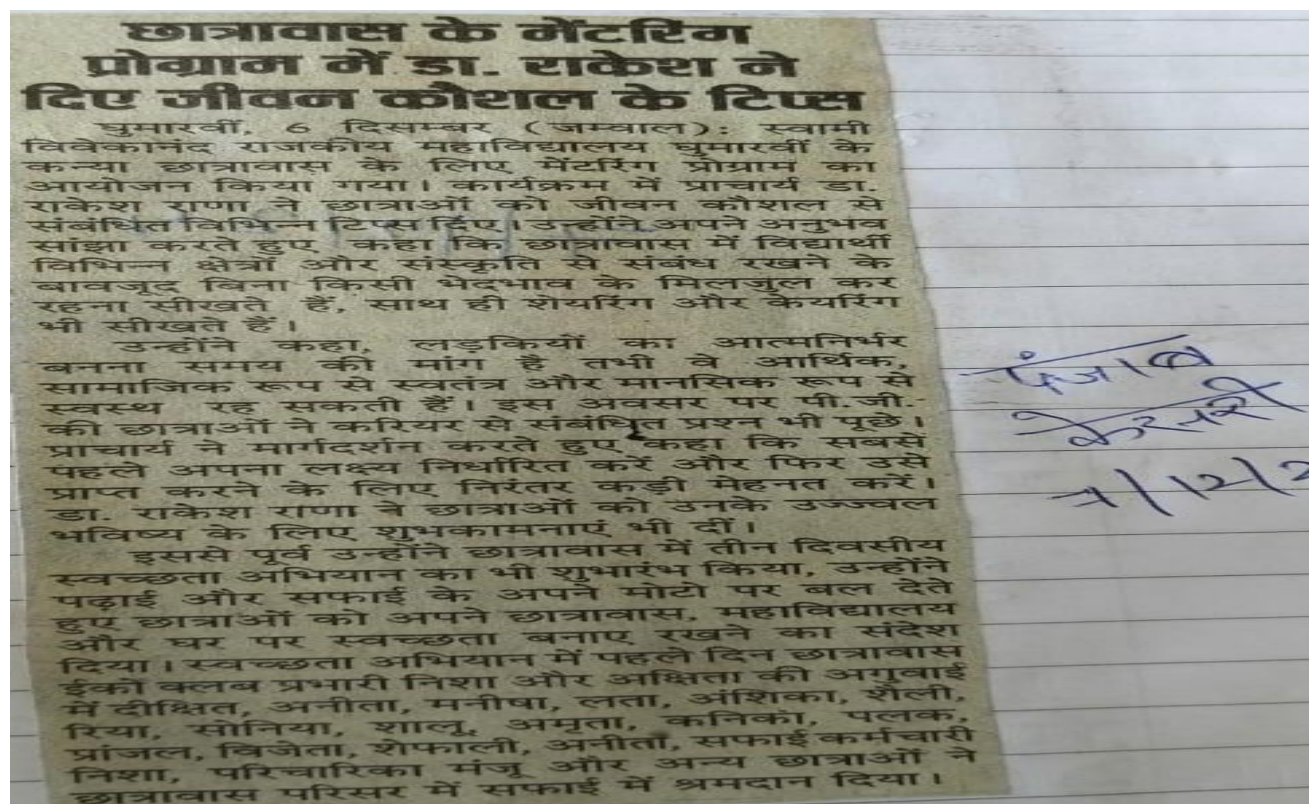 छात्रावास के मेंटरिंग
प्रोग्राम में डा. राकेश ने
दिए जीवन कौशल के टिप्स
घुमारवीं, 6 दिसम्बर (जम्वाल): स्वामी
विवेकानंद राजकीय महाविद्यालय घुमारवीं के
कन्या छात्रावास के लिए मेंटरिंग प्रोग्राम का
आयोजन किया गया। कार्यक्रम में प्राचार्य डा.
राकेश राणा ने छात्राओं को जीवन कौशल से
संबंधित विभिन्न टिप्स दिए। उन्होंने अपने अनुभव
सांझा करते हुए कहा कि छात्रावास में विद्यार्थी
विभिन्न क्षेत्रों और संस्कृति से संबंध रखने के
बावजूद बिना किसी भेदभाव के मिलजुल कर
रहना सीखते हैं, साथ ही शेयरिंग और केयरिंग
भी सीखते हैं।
उन्होंने कहा, लड़कियों का आत्मनिर्भर
बनना समय की मांग है तभी वे आर्थिक,
सामाजिक रूप से स्वतंत्र और मानसिक रूप से
स्वस्थ रह सकती हैं। इस अवसर पर पी.जी.
की छात्राओं ने करियर से संबंधित प्रश्न भी पूछे।
प्राचार्य ने मार्गदर्शन करते हुए कहा कि सबसे
पहले अपना लक्ष्य निर्धारित करें और फिर उसे
प्राप्त करने के लिए निरंतर कड़ी मेहनत करें।
डा. राकेश राणा ने छात्राओं को उनके उज्ज्वल
भविष्य के लिए शुभकामनाएं भी दीं।
इससे पूर्व उन्होंने छात्रावास में तीन दिवसीय
स्वच्छता अभियान का भी शुभारंभ किया, उन्होंने
पढ़ाई और सफाई के अपने मोटो पर बल देते
हुए छात्राओं को अपने छात्रावास, महाविद्यालय
और घर पर स्वच्छता बनाए रखने का संदेश
दिया। स्वच्छता अभियान में पहले दिन छात्रावास
ईको क्लब प्रभारी निशा और अक्षिता की अगुवाई
में दीक्षित, अनीता, मनीषा, लता, अंशिका, शैली,
रिया, सोनिया, शालू, अमृता, कनिका, पलक,
प्रांजल, विजेता, शेफाली, अनीता, सफाई कर्मचारी
निशा, परिचारिका मंजू और अन्य छात्राओं ने
छात्रावास परिसर में सफाई में श्रमदान दिया।
पंजाब
केसरी